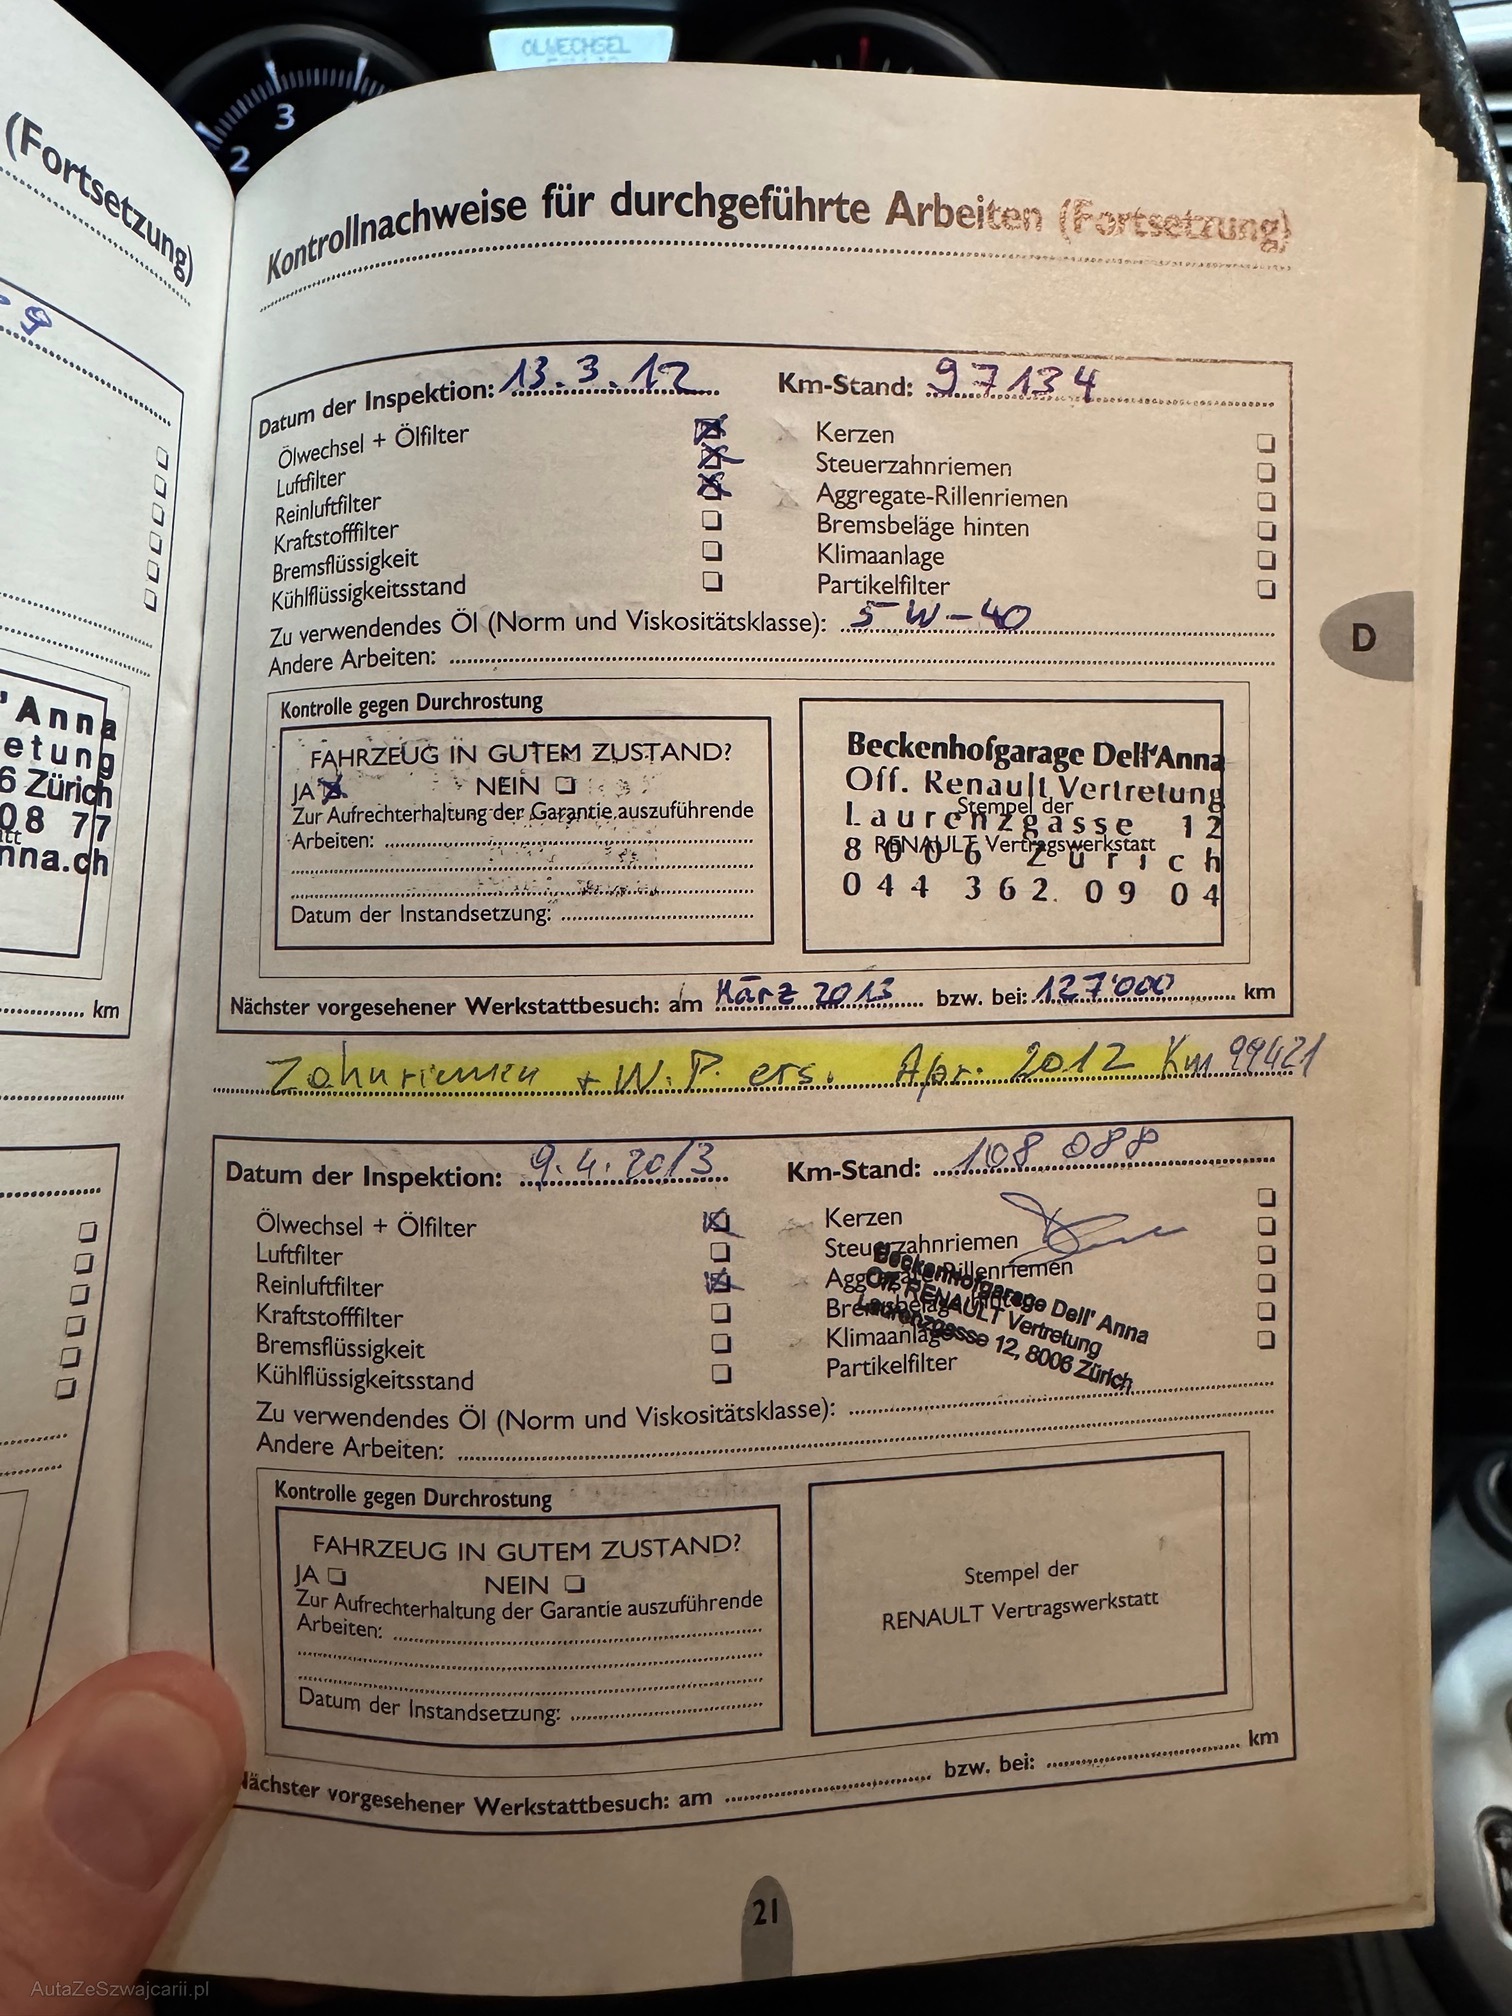 ÖLWECHSEL
3
2
(Fortsetzung)
9
'Anna
etung
6 Zürich
08 77
nna.ch
km
Kontrollnachweise für durchgeführte Arbeiten (Fortsetzung)
Datum der Inspektion: 13.3.12 Km-Stand: 97134
Ölwechsel + Ölfilter Kerzen
Luftfilter Steuerzahnriemen
Reinluftfilter Aggregate-Rillenriemen
Kraftstofffilter Bremsbeläge hinten
Bremsflüssigkeit Klimaanlage
Kühlflüssigkeitsstand Partikelfilter
Zu verwendendes Öl (Norm und Viskositätsklasse): 5-W-40
Andere Arbeiten:
D
Kontrolle gegen Durchrostung
FAHRZEUG IN GUTEM ZUSTAND?
JA NEIN
Zur Aufrechterhaltung der Garantie auszuführende
Arbeiten:
Datum der Instandsetzung:
Beckenhofgarage Dell'Anna
Off. Renault Vertretung
Stempel der
Laurenzgasse 12
RENAULT Vertragswerkstatt
8006 Zürich
044 362 09 04
Nächster vorgesehener Werkstattbesuch: am März 2013 bzw. bei: 127'000 km
Zahnriemen + W.P. ers. Apr. 2012 Km 99421
Datum der Inspektion: 9.4.2013 Km-Stand: 108 088
Ölwechsel + Ölfilter Kerzen
Luftfilter Steuerzahnriemen
Reinluftfilter Aggregate-Rillenriemen
Kraftstofffilter Bremsbeläge hinten
Bremsflüssigkeit Klimaanlage
Kühlflüssigkeitsstand Partikelfilter
Beckenhofgarage Dell' Anna
Off. RENAULT Vertretung
Laurenzgasse 12, 8006 Zürich
Zu verwendendes Öl (Norm und Viskositätsklasse):
Andere Arbeiten:
Kontrolle gegen Durchrostung
FAHRZEUG IN GUTEM ZUSTAND?
JA NEIN
Zur Aufrechterhaltung der Garantie auszuführende
Arbeiten:
Datum der Instandsetzung:
Stempel der
RENAULT Vertragswerkstatt
Nächster vorgesehener Werkstattbesuch: am bzw. bei: km
21
AutaZeSzwajcarii.pl